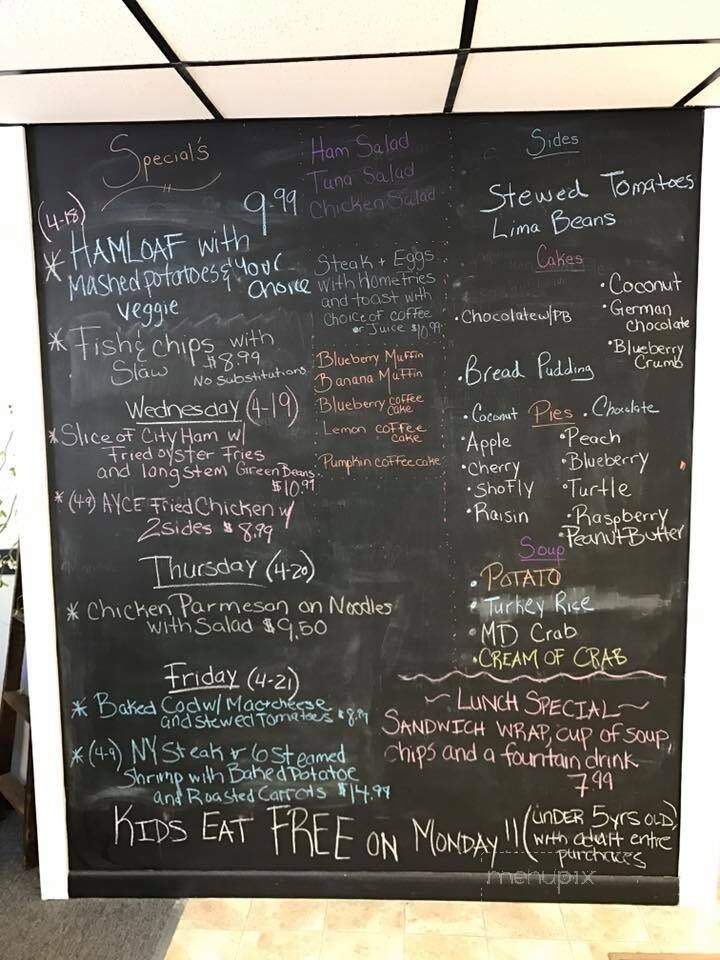 Special's
(4-18)
9.99
* HAMLOAF with
Mashed potatoes & your
choice
veggie
* Fish & chips with
Slaw $8.99
No Substitutions
Wednesday (4-19)
* Slice of City Ham w/
Fried oyster Fries
and longstem Green Beans
$10.99
* (4-9) AYCE Fried Chicken w/
2 sides $8.99
Thursday (4-20)
* Chicken Parmeson on Noodles
with Salad $9.50
Friday (4-21)
* Baked Cod w/ Mac & cheese
and stewed Tomatoes $8.99
* (4-9) NY Steak & 6 Steamed
Shrimp with Baked Potatoe
and Roasted Carrots $14.99
Ham Salad
Tuna Salad
Chicken Salad
Steak + Eggs
with Homefries
and toast with
choice of coffee
or Juice $10.99
Blueberry Muffin
Banana Muffin
Blueberry coffee
cake
Lemon coffee
cake
Pumpkin coffee cake
Sides
Stewed Tomatoes
Lima Beans
Cakes
• Chocolate w/ PB
• Coconut
• German
chocolate
• Blueberry
Crumb
• Bread Pudding
Pies
• Coconut
• Apple
• cherry
• Shofly
• Raisin
• Chocolate
• Peach
• Blueberry
• Turtle
• Raspberry
• Peanut Butter
Soup
• POTATO
• Turkey Rice
• MD Crab
• CREAM OF CRAB
~ LUNCH SPECIAL ~
SANDWICH WRAP, cup of soup,
chips and a fountain drink
7.99
KIDS EAT FREE ON MONDAY!! (UNDER 5yrs OLD)
with adult entre
purchaces
menupix